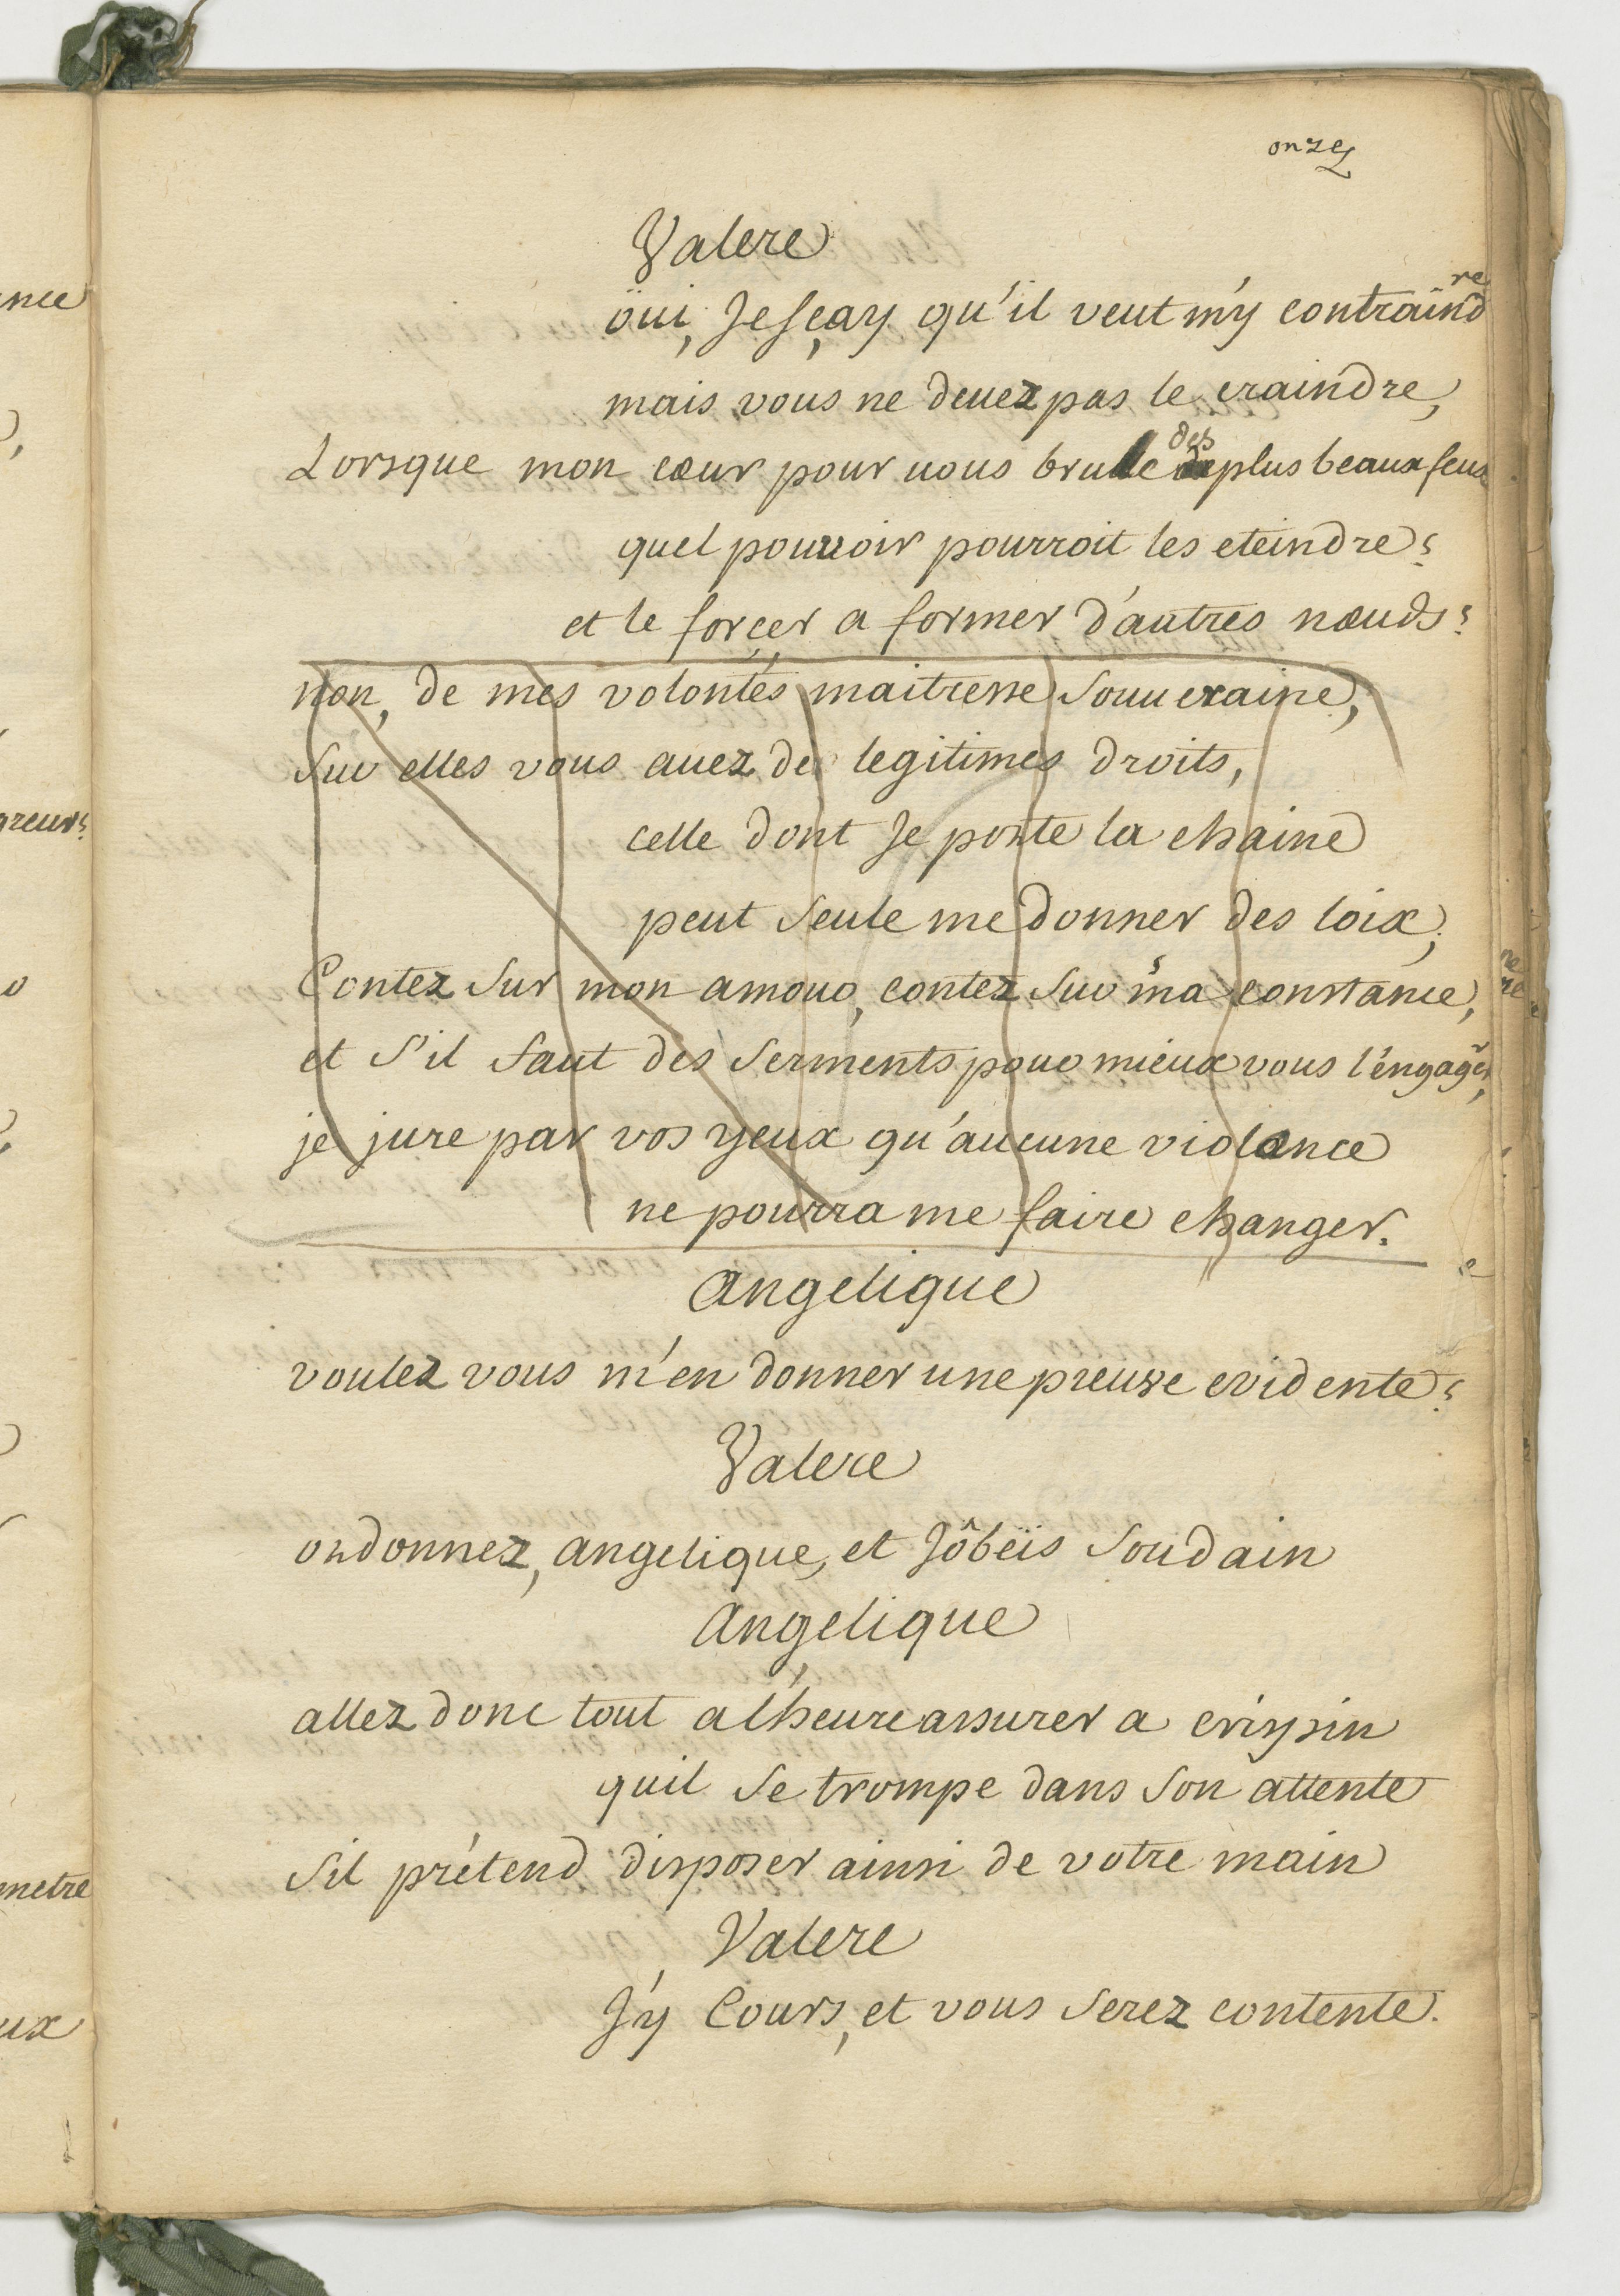 onze
Valere
oui, Je sçay qu'il veut m'y contraindre
mais vous ne deuez pas le craindre,
Lorsque mon cœur pour uous brulle des plus beaux feux
quel pouuoir pourroit les eteindre?
et le forçer a former d'autres nœuds?
non, de mes volontés maitresse Souueraine,
Sur elles vous auez de legitimes droits,
celle dont Je porte la chaine
peut Seule me donner des loix,
Contez Sur mon amour, contez Sur ma constance,
et S'il faut des Serments pour mieux vous l'engager,
je jure par vos yeux qu'aucune violance
ne pourra me faire changer.
Angelique
voulez vous m'en donner une preuve evidente?
Valere
ordonnez, angelique, et J'ôbeïs Soudain
Angelique
allez donc tout a lheure assurer a crispin
quil Se trompe dans Son attente
Sil prétend disposer ainsi de votre main
Valere
J'y Cours, et vous Serez contente.